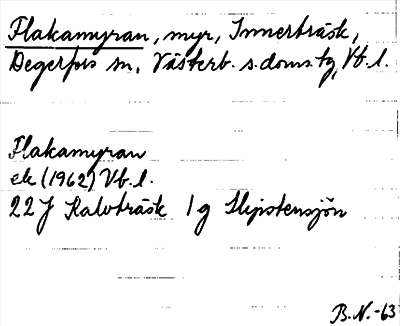 Flakamyran, myr, Innerträsk,
Degerfors sn, Västerb. s. doms. tg, Vb. l.
Flakamyran
ek (1962) Vb. l.
22 J Kalvträsk 1 g Slipstensjön
B.N.-63